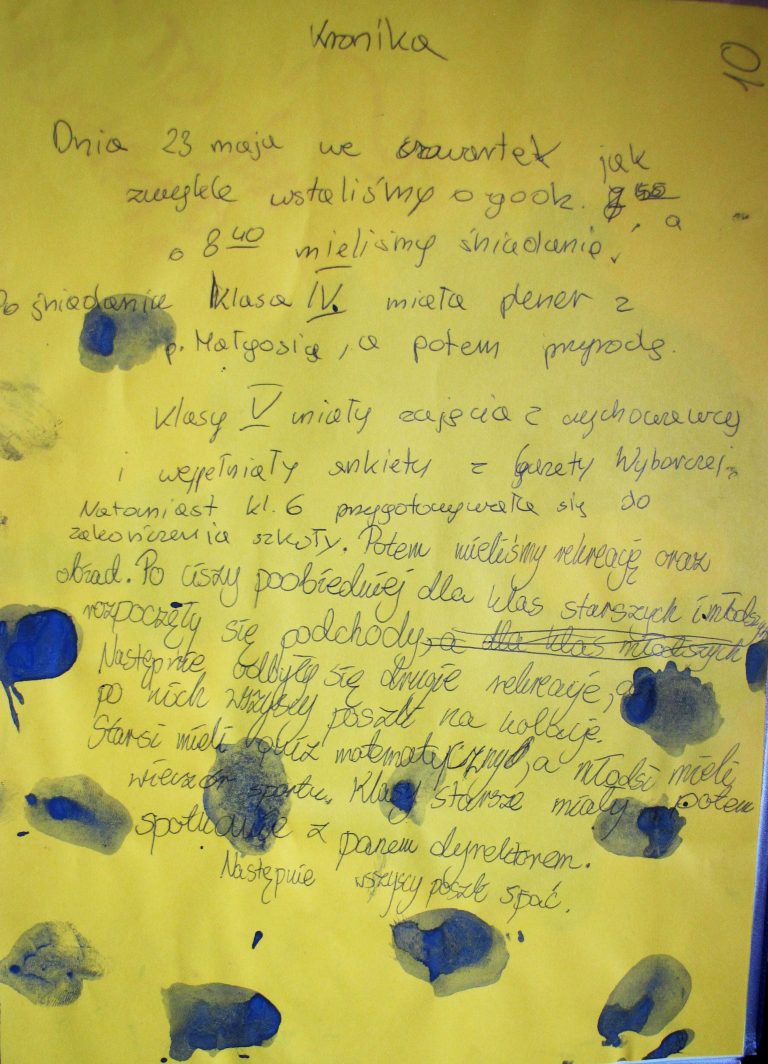 Kronika
10
Dnia 23 maja we czwartek jak
zwykle wstaliśmy o godz. , a
o 8 40 mieliśmy śniadanie.
Po śniadaniu klasa IV. miała plener z
p. Małgosią, a potem przyrodę.
Klasy V miały zajęcia z wychowawcą
i wypełniały ankiety z Gazety Wyborczej.
Natomiast kl. 6 przygotowywała się do
zakończenia szkoły. Potem mieliśmy rekreację oraz
obiad. Po ciszy poobiedniej dla klas starszych i młodszych
rozpoczęły się podchody, a dla klas młodszych
Następnie odbyły się drugie rekreacje, a
po nich wszyscy poszli na kolację.
Starsi mieli quiz matematyczny, a młodsi mieli
wieczór sportu. Klasy starsze miały potem
spotkanie z panem dyrektorem.
Następnie wszyscy poszli spać.